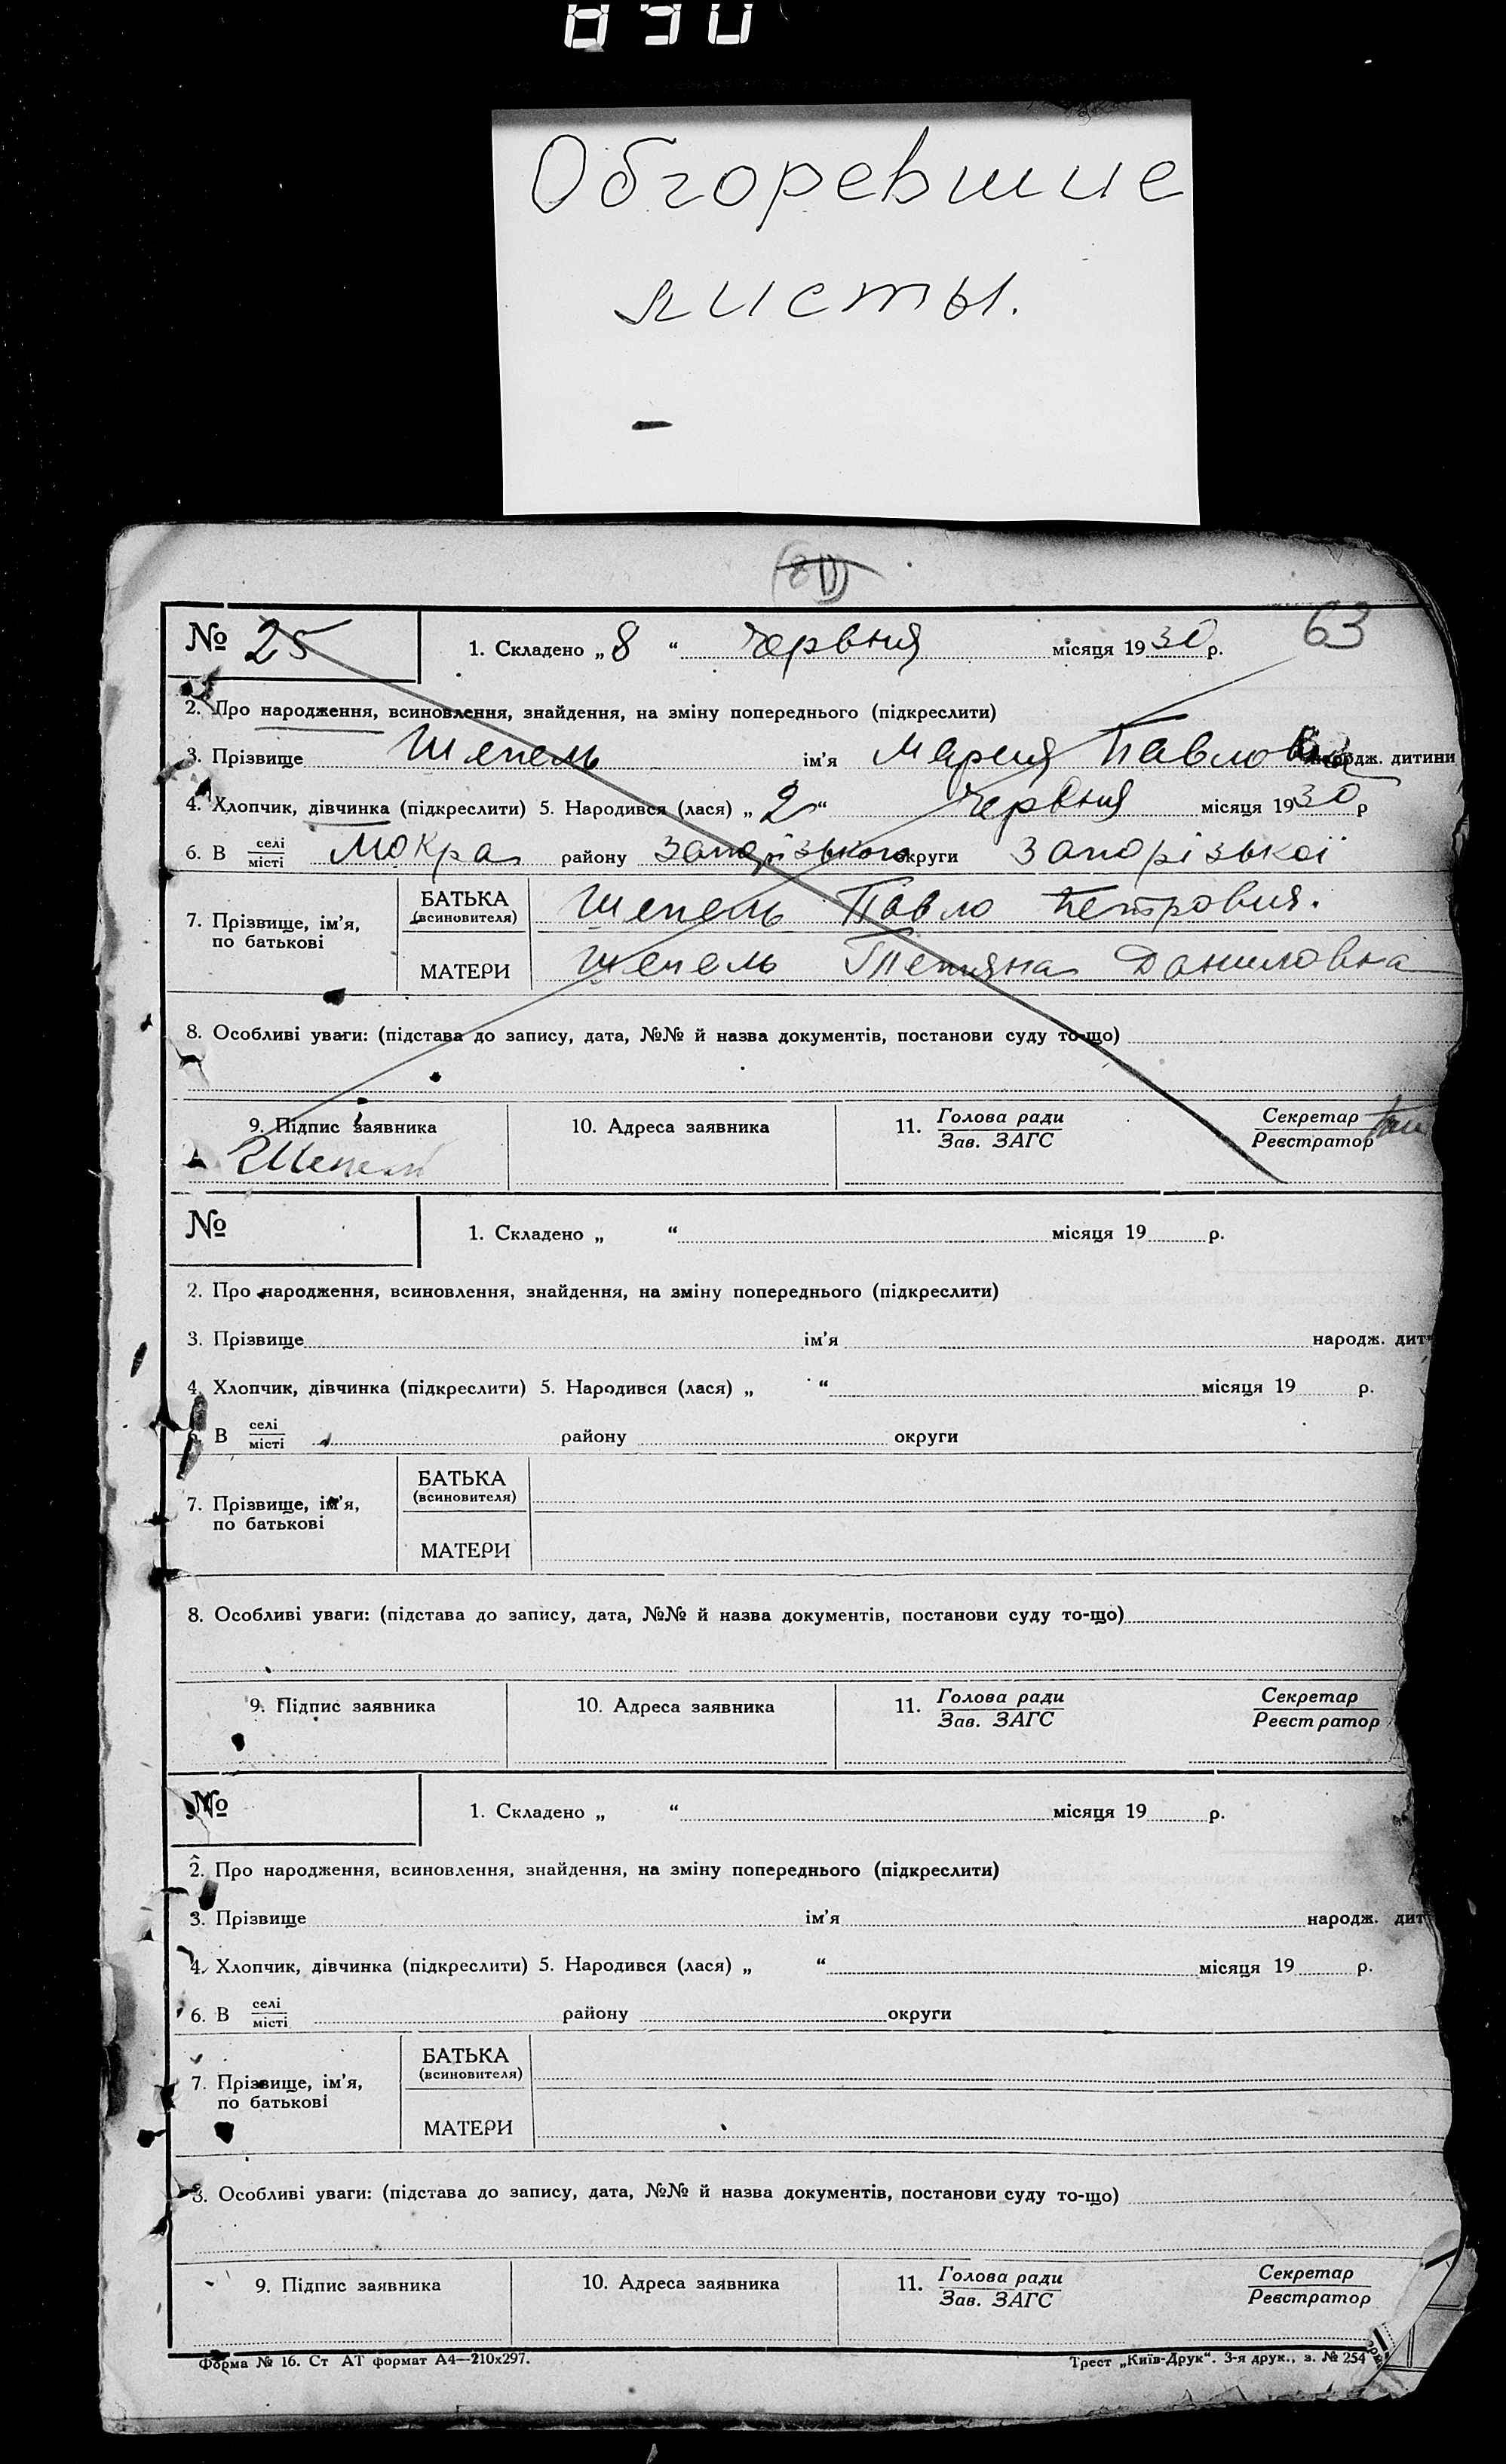 890
Обгоревшие
листы.
63
№ 25 1. Складено „ 8 “ червня місяця 1930 р.
2. Про народження, всиновлення, знайдення, на зміну попереднього (підкреслити)
3. Прізвище Шепель ім'я Мария Павловна народж. дитини
4. Хлопчик, дівчинка (підкреслити) 5. Народився (лася) „ 2 “ червня місяця 1930 р
6. В селі/місті Мокра району Запорізького округи Запорізької
7. Прізвище, ім'я, по батькові БАТЬКА (всиновителя) Шепель Павло Петрович.
МАТЕРИ Шепель Тетяна Даниловна
8. Особливі уваги: (підстава до запису, дата, №№ й назва документів, постанови суду то-що)
9. Підпис заявника 10. Адреса заявника 11. Голова ради/Зав. ЗАГС Секретар/Реєстратор
Шепель
№ 1. Складено „ “ місяця 19 р.
2. Про народження, всиновлення, знайдення, на зміну попереднього (підкреслити)
3. Прізвище ім'я народж. дит
4. Хлопчик, дівчинка (підкреслити) 5. Народився (лася) „ “ місяця 19 р.
В селі/місті району округи
7. Прізвище, ім'я, по батькові БАТЬКА (всиновителя)
МАТЕРИ
8. Особливі уваги: (підстава до запису, дата, №№ й назва документів, постанови суду то-що)
9. Підпис заявника 10. Адреса заявника 11. Голова ради/Зав. ЗАГС Секретар/Реєстратор
№ 1. Складено „ “ місяця 19 р.
2. Про народження, всиновлення, знайдення, на зміну попереднього (підкреслити)
3. Прізвище ім'я народж. дит
4. Хлопчик, дівчинка (підкреслити) 5. Народився (лася) „ “ місяця 19 р.
6. В селі/місті району округи
7. Прізвище, ім'я, по батькові БАТЬКА (всиновителя)
МАТЕРИ
8. Особливі уваги: (підстава до запису, дата, №№ й назва документів, постанови суду то-що)
9. Підпис заявника 10. Адреса заявника 11. Голова ради/Зав. ЗАГС Секретар/Реєстратор
Форма № 16. Ст АТ формат А4—210х297. Трест „Київ-Друк“. 3-я друк., з. № 254